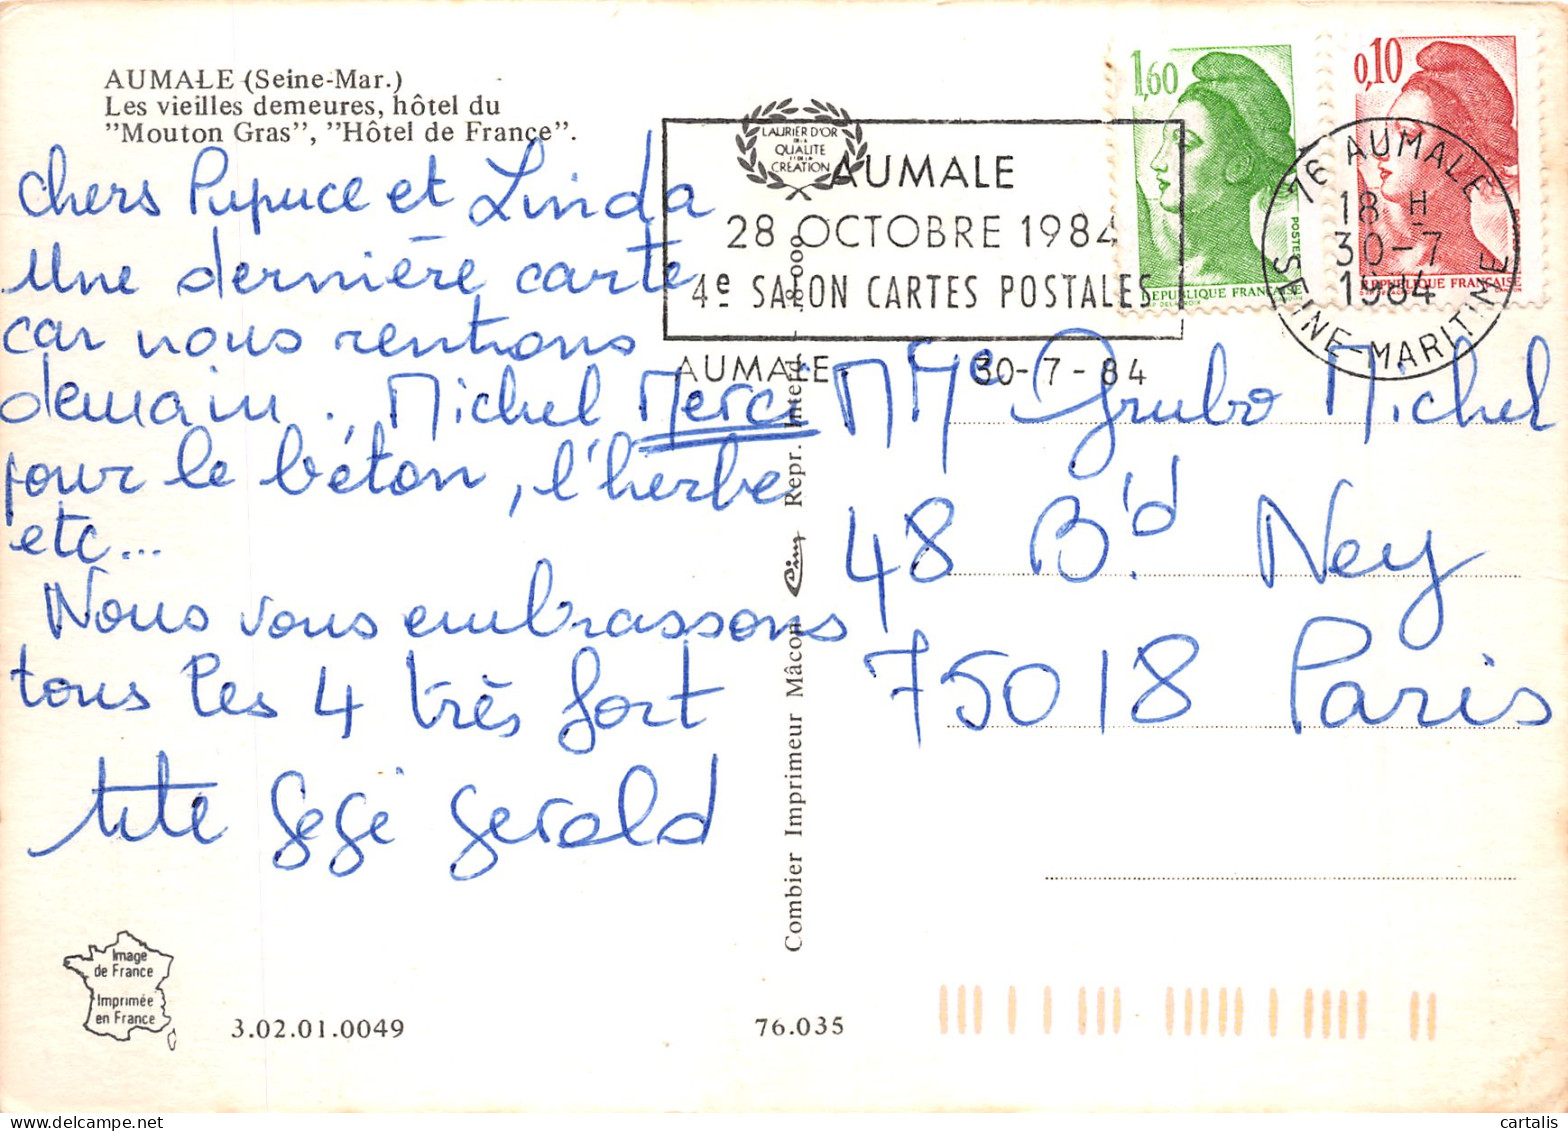 AUMALE (Seine-Mar.)
Les vieilles demeures, hôtel du
"Mouton Gras", "Hôtel de France".
Chers Pupuce et Linda
Une dernière carte
car nous rentrons
demain. Michel Merci
pour le béton, l'herbe
etc...
Nous vous embrassons
tous les 4 très fort
tété gégé gerald
LAURIER D'OR
DE LA
QUALITE
ET DE LA
CREATION
AUMALE
28 OCTOBRE 1984
4e SALON CARTES POSTALES
AUMALE. 30-7-84
1,60
POSTES
REPUBLIQUE FRANCAISE
0,10
REPUBLIQUE FRANCAISE
76 AUMALE
18 H
30-7
1984
SEINE-MARITIME
M Me Grubo Michel
48 B'd Ney
75018 Paris
Combier Imprimeur Mâcon Cim Repr. Interd. -
Image
de France
Imprimée
en France
3.02.01.0049
76.035
cartalis